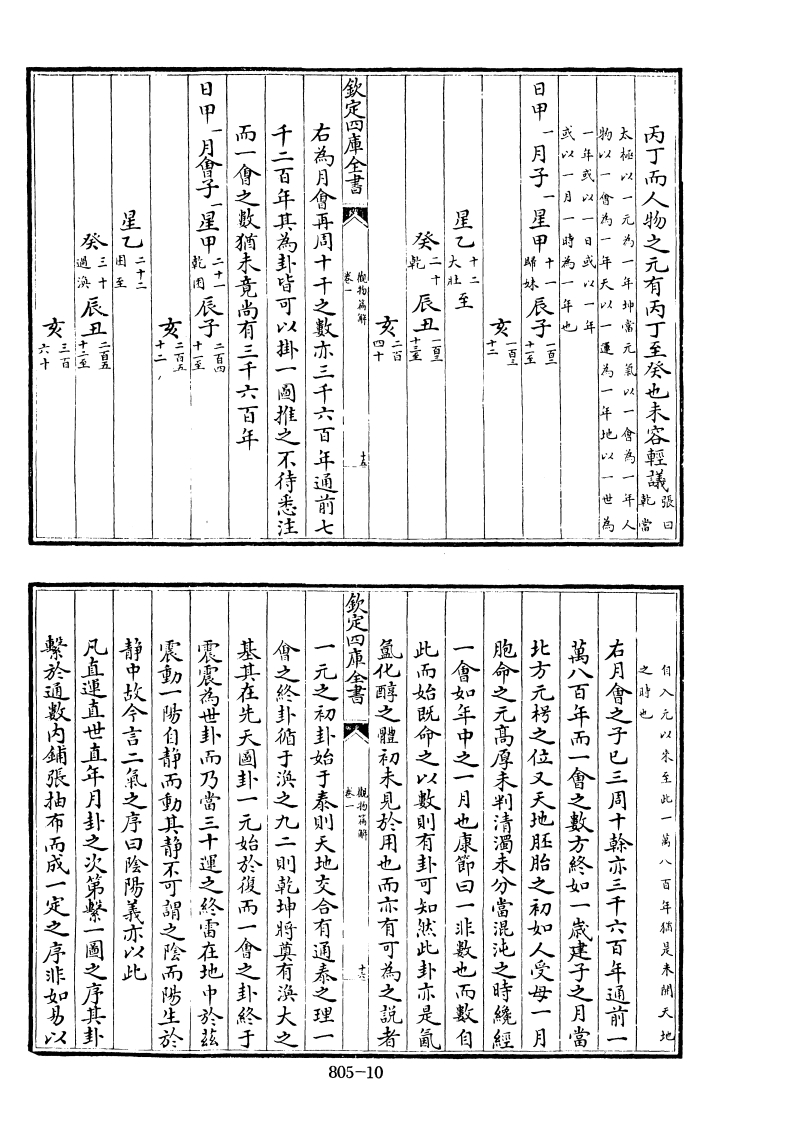 丙丁而人物之元有丙丁至癸也未容輕議張曰乾當
太極以一元為一年坤當元氣以一會為一年人
物以一會為一年天以一運為一年地以一世為
一年或以一日或以一年
或以一月一時為一年也
日甲一月子一星甲十一歸妹辰子一百二十一至
亥一百三十二
星乙十二大壯至
癸二十乾辰丑一百三十三至
亥二百四十
欽定四庫全書
觀物篇解
卷一
十五
右為月會再周十干之數亦三千六百年通前七
千二百年其為卦皆可以掛一圖推之不待悉注
而一會之數猶未竟尚有三千六百年
日甲一月會子一星甲二十一乾困辰子二百四十一至
亥二百五十二
星乙二十二困至
癸三十過渙辰丑二百五十三至
亥三百六十
自入元以來至此一萬八百年猶是未開天地
之時也
右月會之子已三周十幹亦三千六百年通前一
萬八百年而一會之數方終如一歲建子之月當
北方元枵之位又天地胚胎之初如人受母一月
胞命之元高厚未判清濁未分當混沌之時纔經
一會如年中之一月也康節曰一非數也而數自
此而始既命之以數則有卦可知然此卦亦是氤
氳化醇之體初未見於用也而亦有可為之說者
欽定四庫全書
觀物篇解
卷一
十六
一元之初卦始于泰則天地交合有通泰之理一
會之終卦循于渙之九二則乾坤將奠有渙大之
基其在先天圖卦一元始於復而一會之卦終于
震震為世卦而乃當三十運之終雷在地中於茲
震動一陽自靜而動其靜不可謂之陰而陽生於
靜中故今言二氣之序曰陰陽義亦以此
凡直運直世直年月卦之次第繫一圖之序其卦
繫於通數內鋪張抽布而成一定之序非如易以
805-10